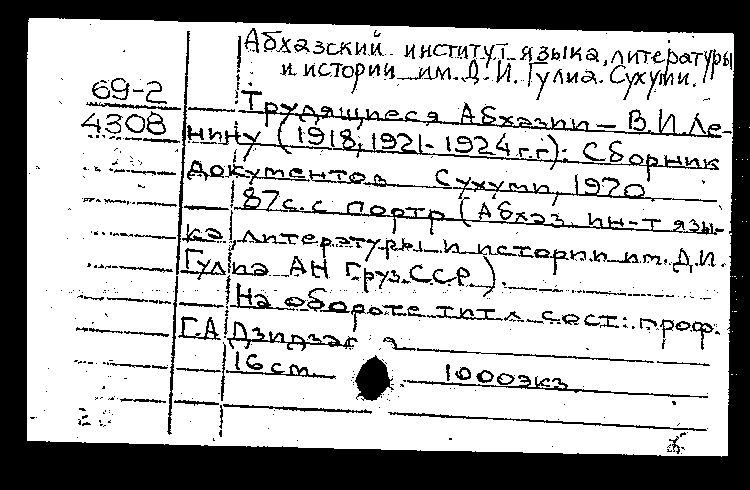 Абхазский институт языка, литературы
и истории им. Д. И. Гулиа. Сухуми.
69-2
4308
Трудящиеся Абхазии — В.И.Ле-
нину (1918; 1921-1924 г.г): Сборник
документов Сухуми, 1970.
87с. с портр (Абхаз. ин-т язы-
ка, литературы и истории им. Д.И.
Гулиа АН Груз.ССР).
На обороте тит. л. сост.: проф.
Г.А.
16 см 1000экз.